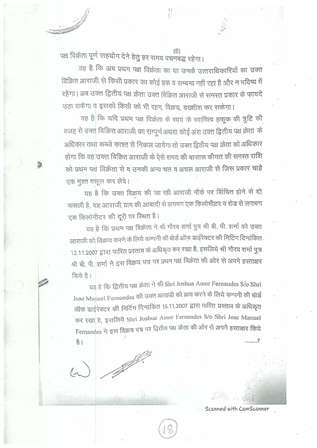 (6)
पक्ष विक्रेता पूर्ण सहयोग देने हेतु हर समय वचनबद्ध रहेगा।
यह है कि अब प्रथम पक्ष विक्रेता का या उनके उत्तराधिकारियों का उक्त
विक्रित आराजी से किसी प्रकार का कोई हक व सम्बन्ध नहीं रहा है और न भविष्य में
रहेगा। अब उक्त द्वितीय पक्ष क्रेता उक्त विक्रित आराजी से समस्त प्रकार के फायदे
उठा सकेगा व इसको किसी को भी रहन, विक्रय, बख्शीश कर सकेगा।
यह है कि यदि प्रथम पक्ष विक्रेता के स्वयं के स्वामित्व हकूक की त्रुटि की
वजह से उक्त विक्रित आराजी का सम्पूर्ण अथवा कोई अंश उक्त द्वितीय पक्ष क्रेता के
अधिकार तथा कब्जे काश्त से निकल जायेगा तो उक्त द्वितीय पक्ष क्रेता को अधिकार
होगा कि वह उक्त विक्रित आराजी के ऐसे समय की बाजारू कीमत की समस्त राशि
को प्रथम पक्ष विक्रेता से व उनकी अन्य चल व अचल आराजी से जिस प्रकार चाहे
एक मुश्त वसूल कर लेवे।
यह है कि उक्त विक्रय की जा रही आराजी मौके पर सिंचित होने से दो
फसली है, यह आराजी ग्राम की आबादी से लगभग एक किलोमीटर व रोड से लगभग
एक किलोमीटर की दूरी पर स्थित है।
यह है कि प्रथम पक्ष विक्रेता ने श्री गौरव शर्मा पुत्र श्री बी. पी. शर्मा को उक्त
आराजी को विक्रय करने के लिये कम्पनी की बोर्ड ऑफ डाईरेक्टर की मिटिंग दिनांकित
12.11.2007 द्वारा पारित प्रस्ताव के अधिकृत कर रखा है, इसलिये श्री गौरव शर्मा पुत्र
श्री बी. पी. शर्मा ने इस विक्रय पत्र पर प्रथम पक्ष विक्रेता की ओर से अपने हस्ताक्षर
किये है।
यह है कि द्वितीय पक्ष क्रेता ने श्री Shri Joshua Amor Fernandes S/o Shri
Jose Manuel Fernandes को उक्त आराजी को क्रय करने के लिये कम्पनी की बोर्ड
ऑफ डाईरेक्टर की मिटिंग दिनांकित 15.11.2007 द्वारा पारित प्रस्ताव के अधिकृत
कर रखा है, इसलिये Shri Joshua Amor Fernandes S/o Shri Jose Manuel
Fernandes ने इस विक्रय पत्र पर द्वितीय पक्ष क्रेता की ओर से अपने हस्ताक्षर किये
है।
Scanned with CamScanner
18